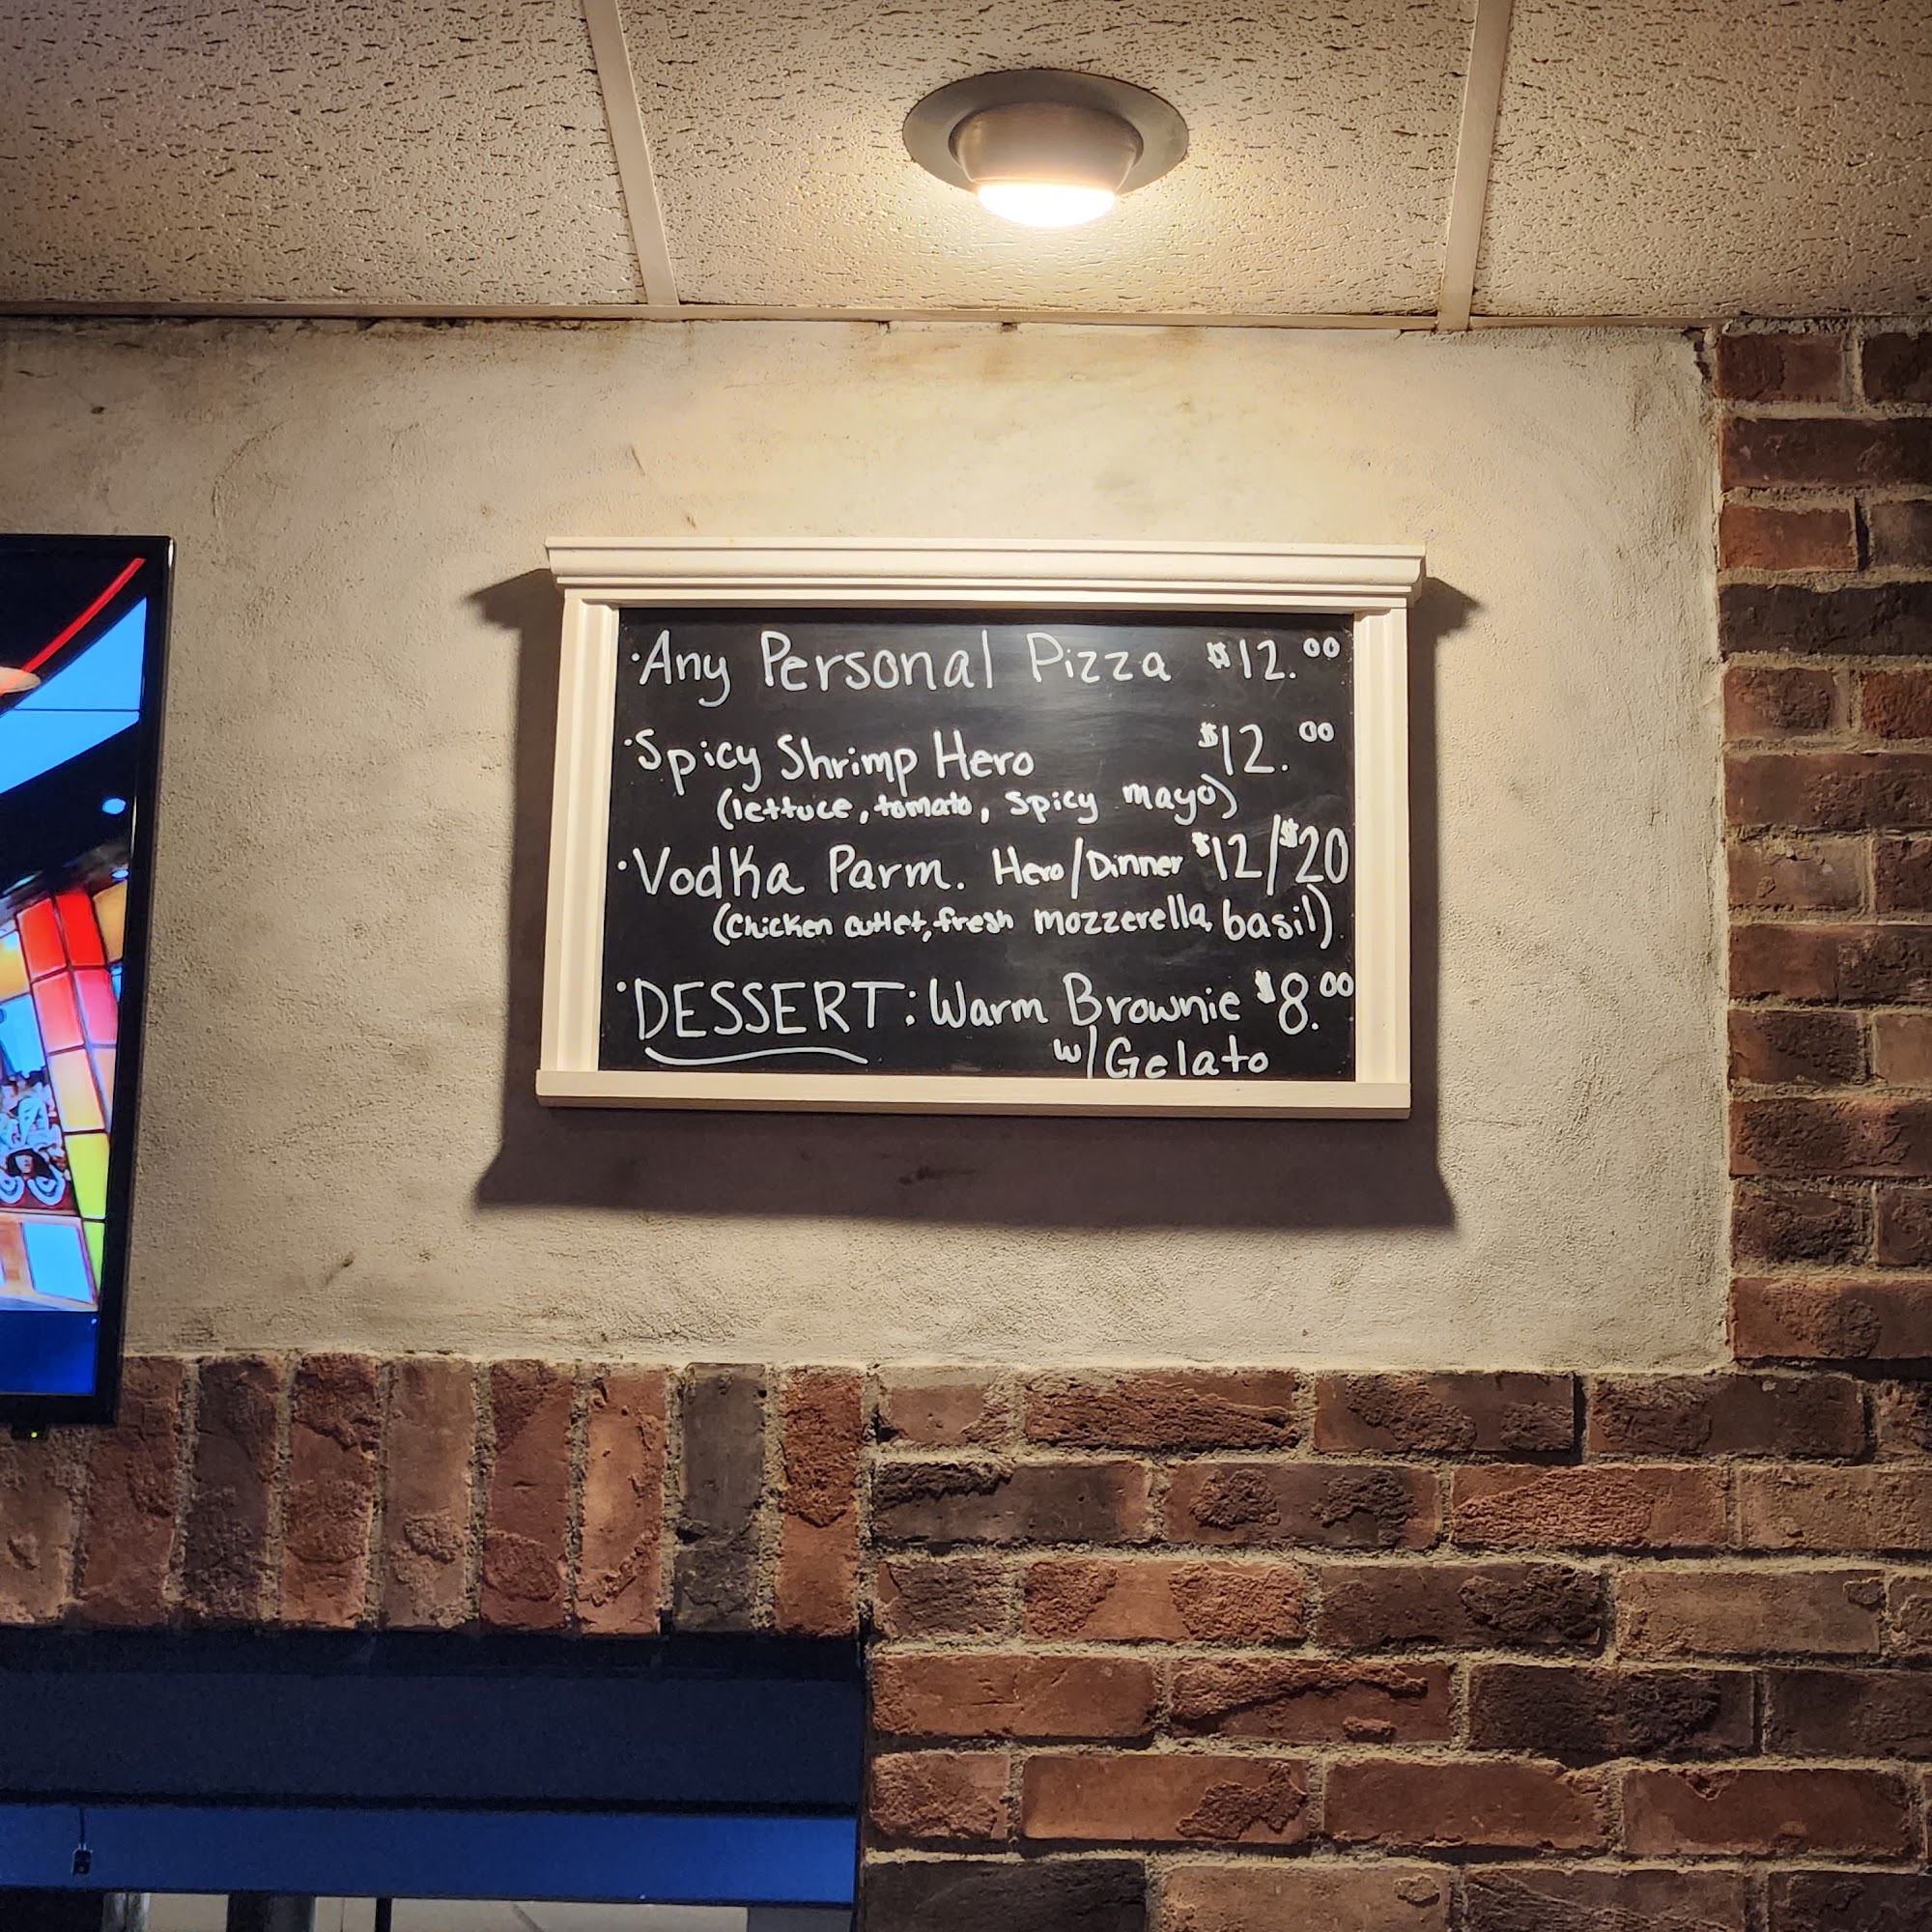 ·Any Personal Pizza $12.00
·Spicy Shrimp Hero $12.00
(lettuce, tomato, spicy mayo)
·Vodka Parm. Hero/Dinner $12/$20
(Chicken cutlet, fresh mozzerella, basil)
·DESSERT: Warm Brownie $8.00
w/Gelato